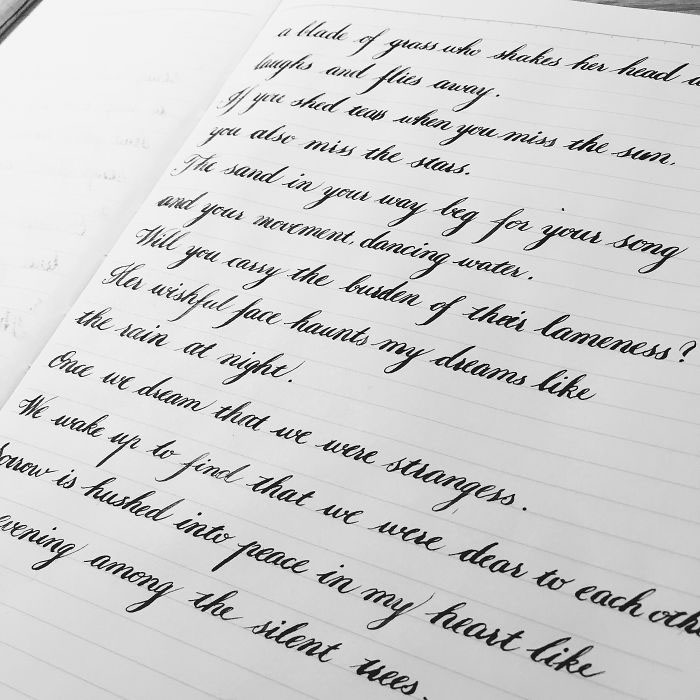 a blade of grass who shakes her head a
laughs and flies away.
If you shed teas when you miss the sun,
you also miss the stars.
The sand in your way beg for your song
and your movement, dancing water.
Will you carry the burden of their lameness?
Her wishful face haunts my dreams like
the rain at night.
Once we dream that we were strangers.
We wake up to find that we were dear to each othe
Sorrow is hushed into peace in my heart like
evening among the silent trees.